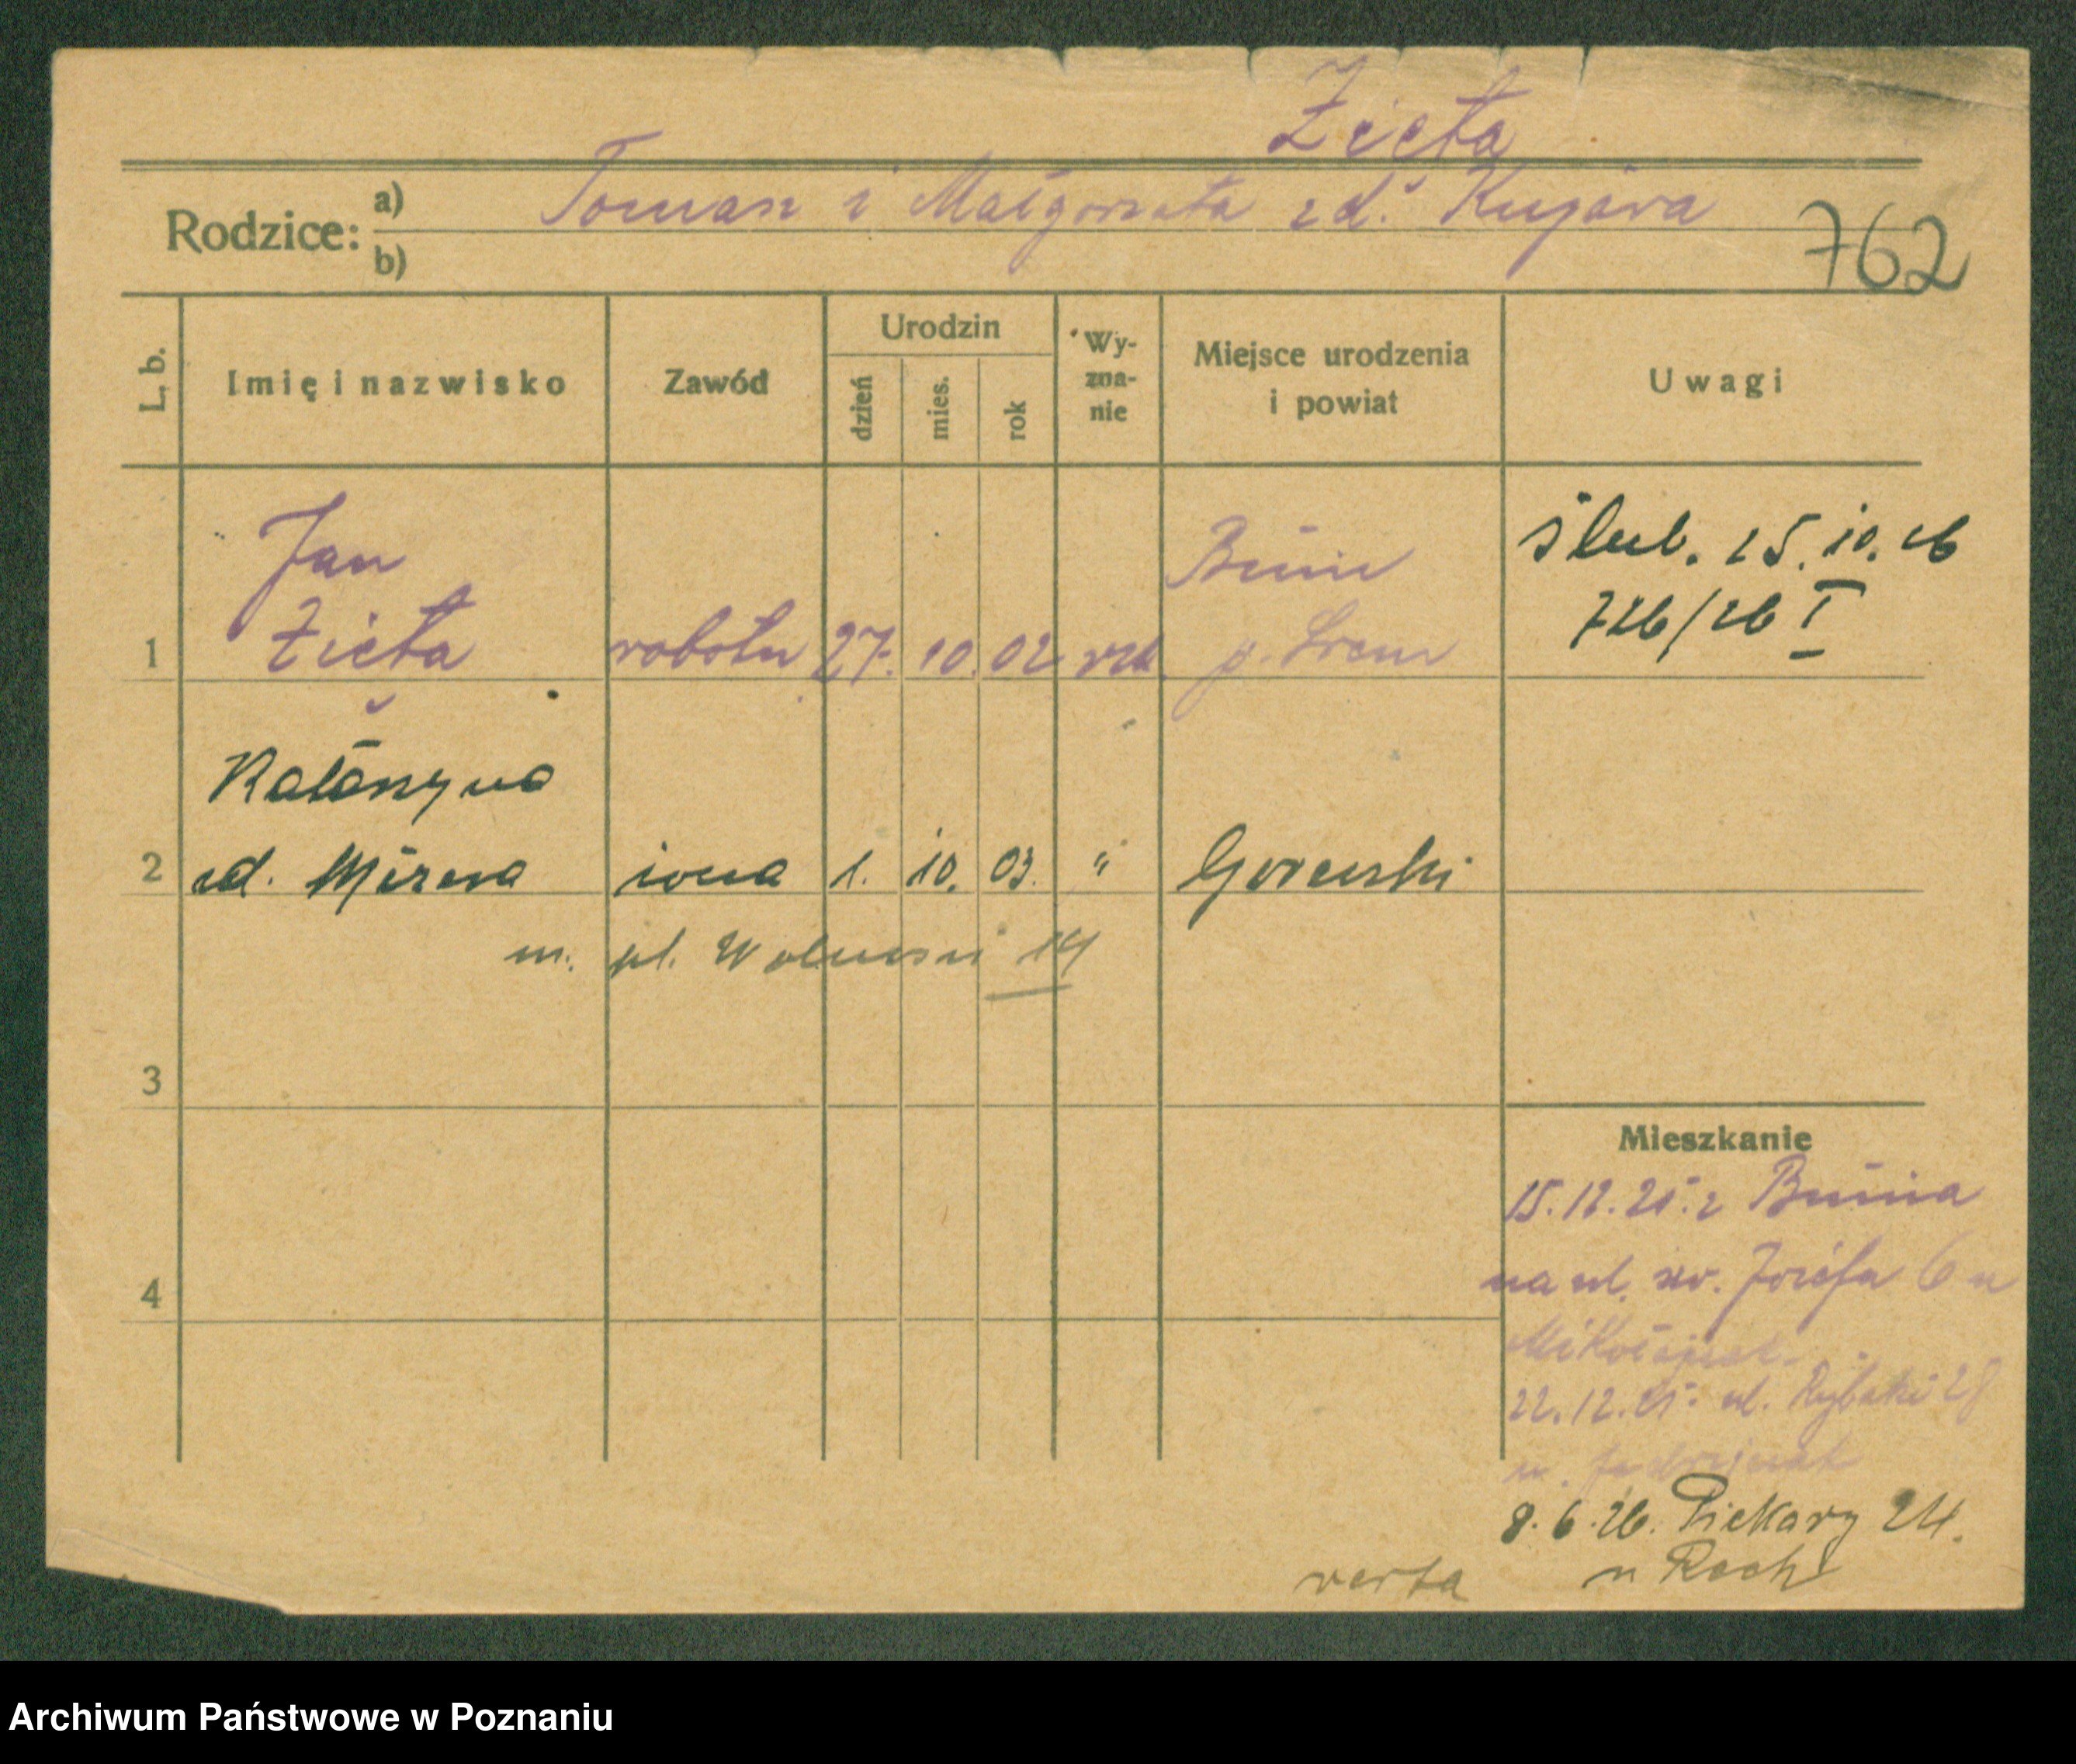 Zięta
Rodzice: a) Tomasz i Małgorzata zd. Kujawa
b)
762
L. b. Imię i nazwisko Zawód Urodzin dzień mies. rok Wy-zna-nie Miejsce urodzenia i powiat Uwagi
Jan Bnin Ślub. 25.10.26
1 Zięta robotn 27. 10. 02 rzk p. Śrem 726/26 I
Katarzyna
2 zd. Mizera żona 1. 10. 03. " Goreczki
m. pl. Wolności 14
3
Mieszkanie
15.12.25. z Bnina
4 na ul. św. Józefa 6 u
Mikołajczak
22.12.25. ul. Rybaki 28
u. Jędrzejczak
8.6.26. Piekary 24.
verta u Roch
Archiwum Państwowe w Poznaniu